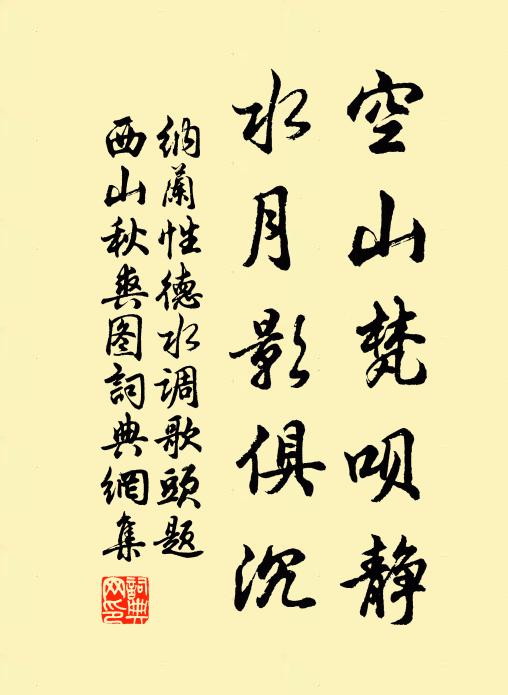 空山梵呗静
水月影俱沉
纳蘭性德水调歌頭题
西山秋爽图詞典網集
詞典网印